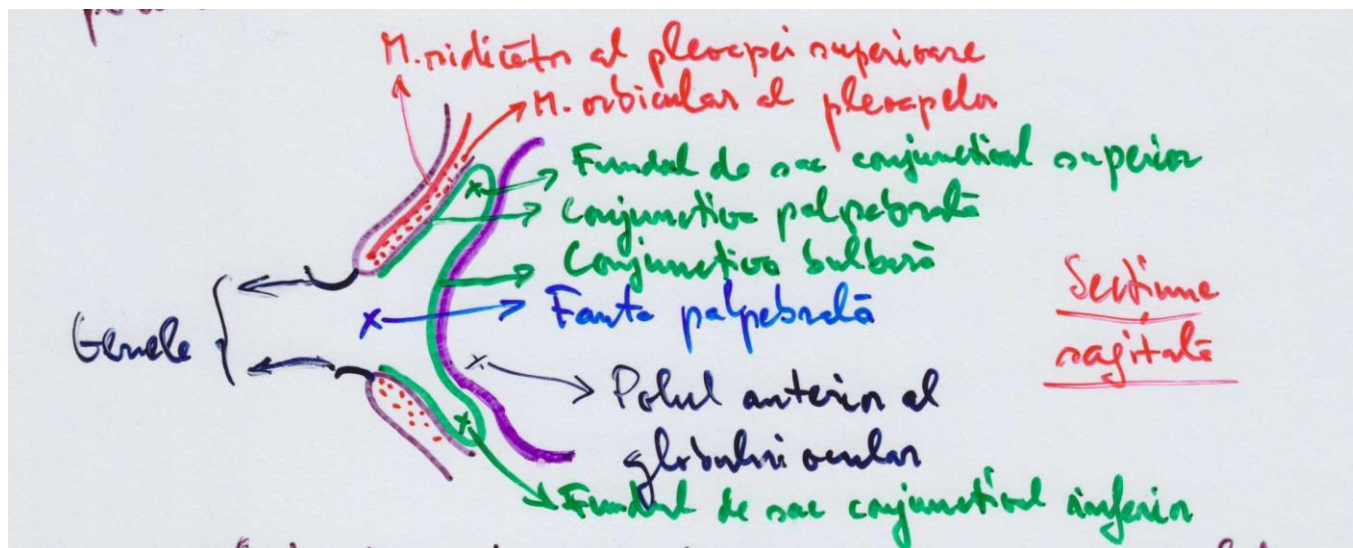 M. ridicător al pleoapei superioare
M. orbicular al pleoapelor
Fundul de sac conjunctival superior
Conjunctiva palpebrală
Conjunctiva bulbară
Fanta palpebrală
Genele
Secțiune
sagitală
Polul anterior al
globului ocular
Fundul de sac conjunctival inferior